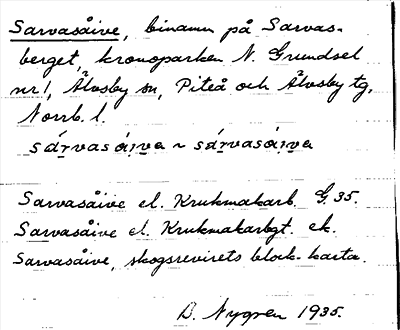 Sarvasåive, binamn på Sarvas-
berget, kronoparken N. Grundsel
nr 1, Älvsby sn, Piteå och Älvsby tg,
Norrb. l.
sárvasái̯va ~ sárvasái̯va
Sarvasåive el. Krukmakarb. G 35.
Sarvasåive el. Krukmakarbgt. ek.
Sarvasåive, skogsrevirets block-karta.
D. Nygren 1935.